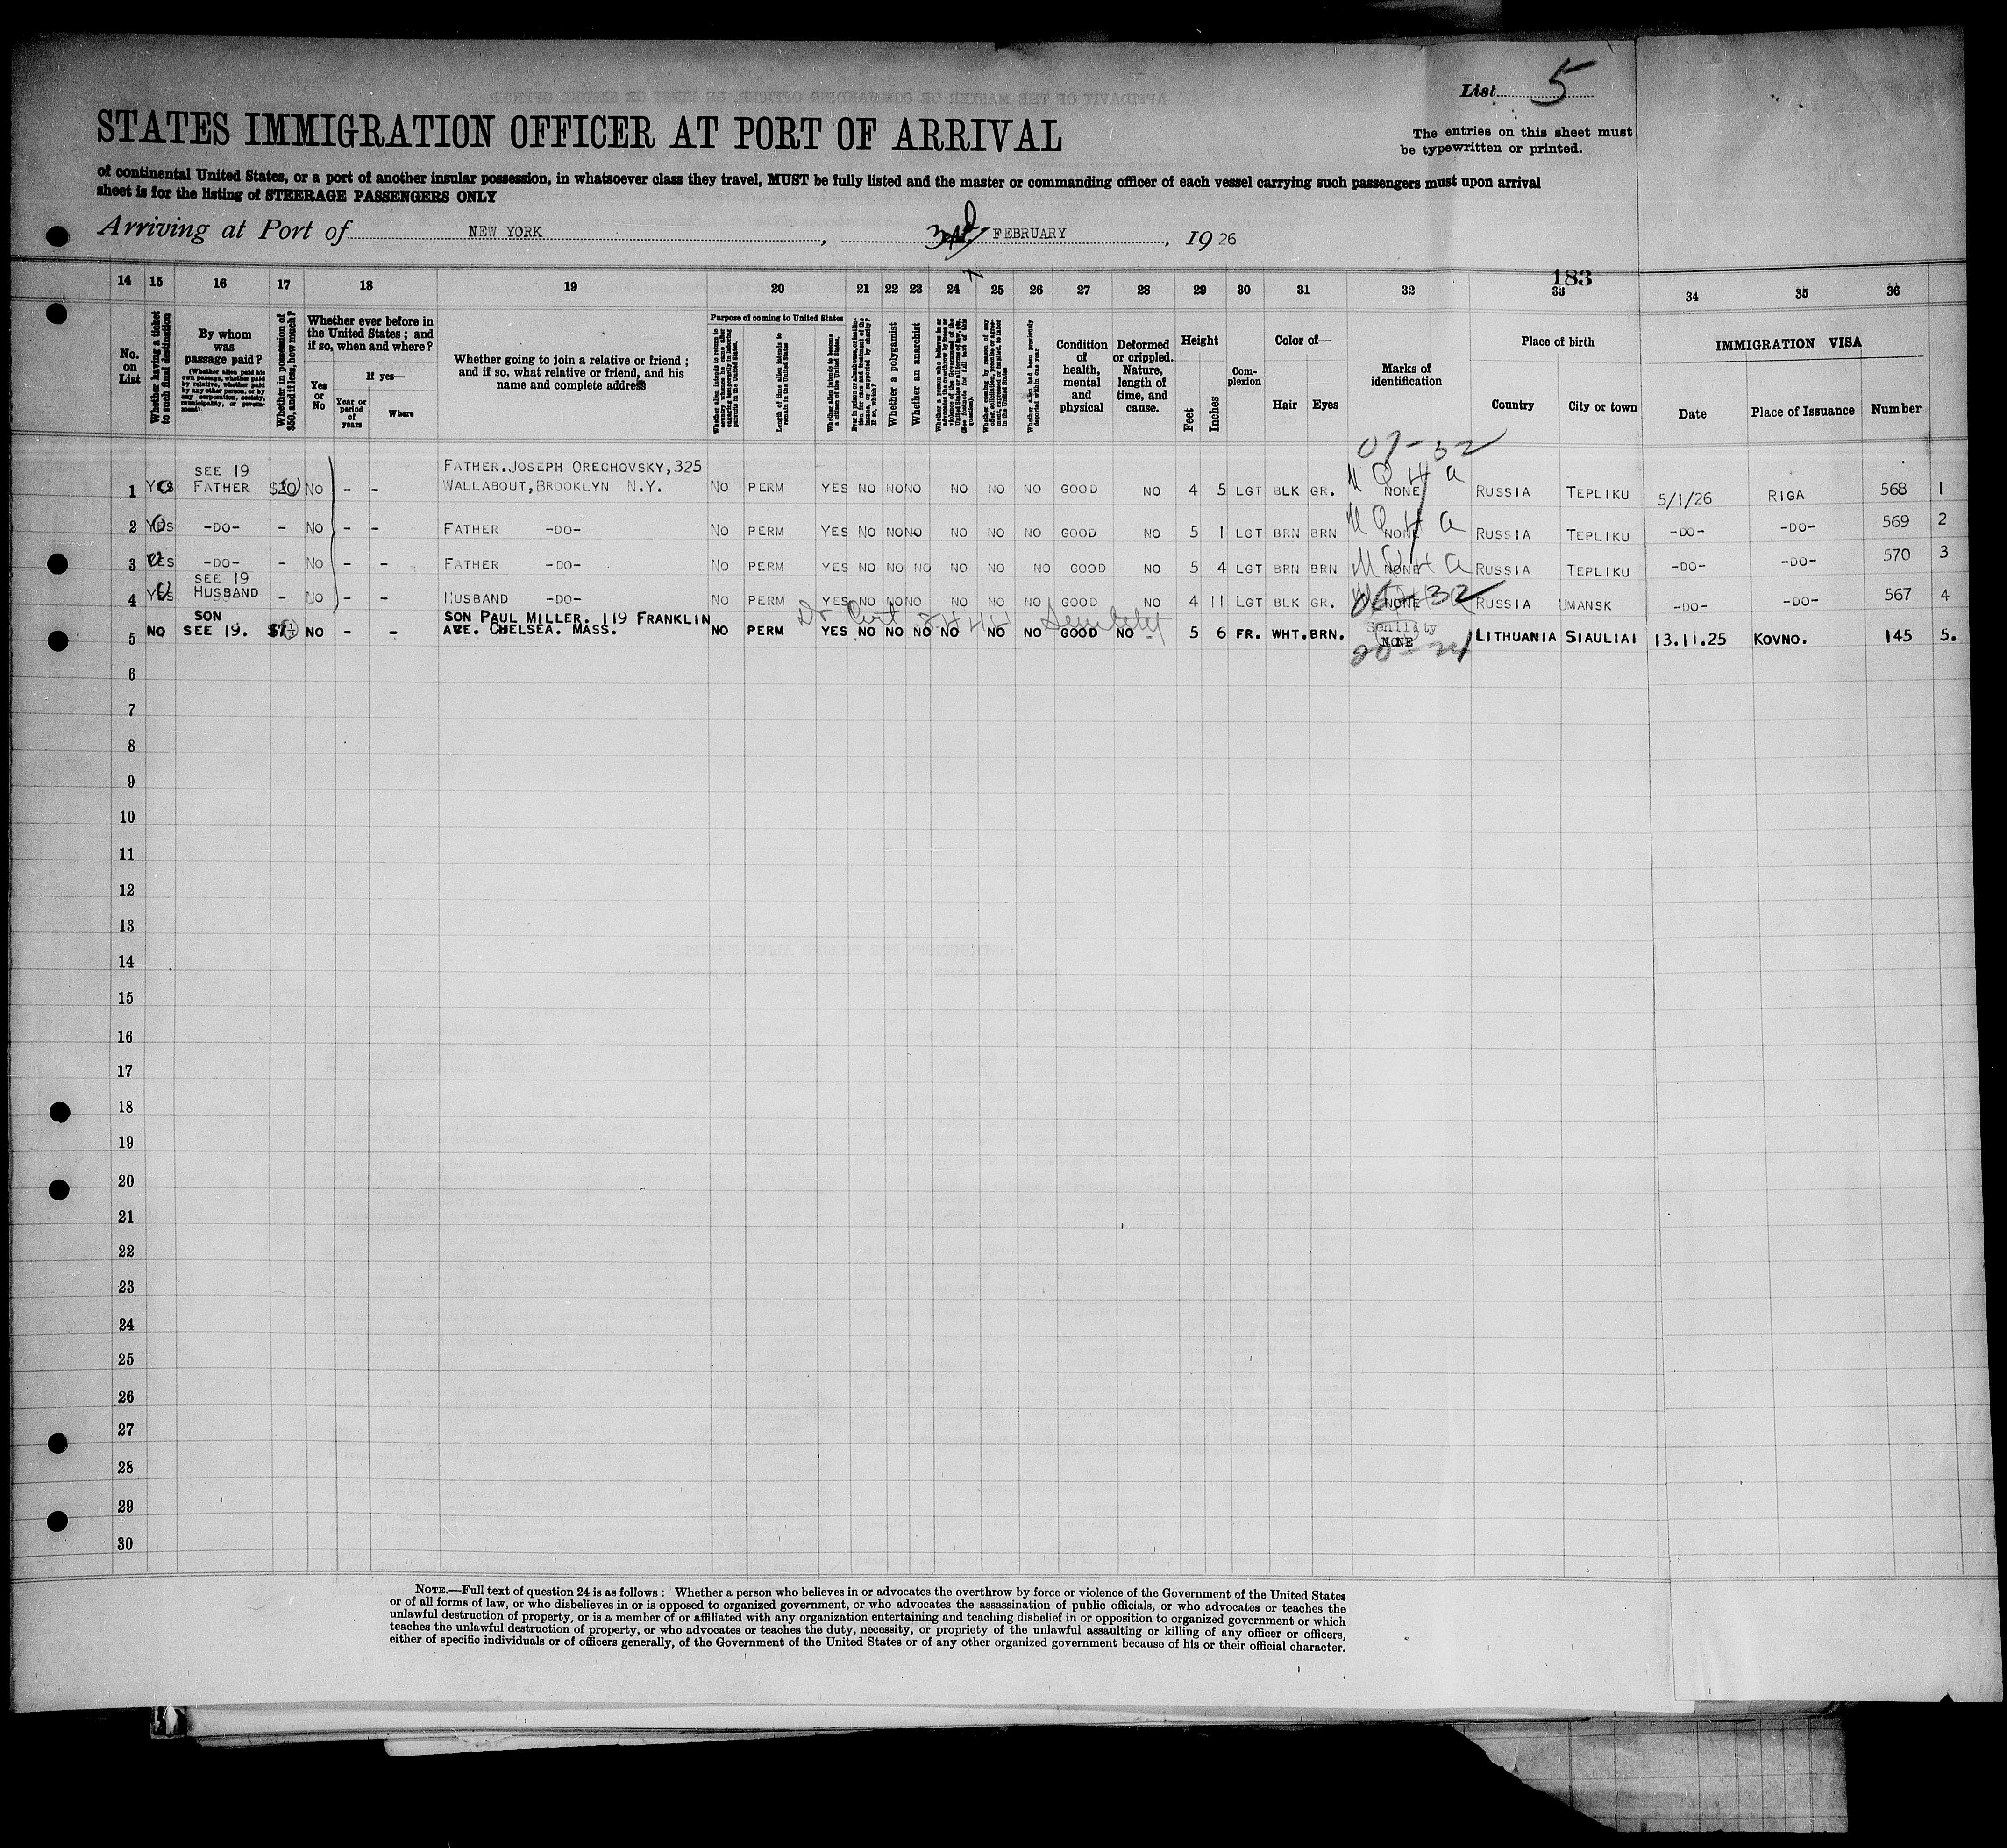 List 5
STATES IMMIGRATION OFFICER AT PORT OF ARRIVAL
The entries on this sheet must
be typewritten or printed.
of continental United States, or a port of another insular possession, in whatsoever class they travel, MUST be fully listed and the master or commanding officer of each vessel carrying such passengers must upon arrival
sheet is for the listing of STEERAGE PASSENGERS ONLY
Arriving at Port of NEW YORK, FEBRUARY, 1926
183
14 15 16 17 18 19 20 21 22 23 24 25 26 27 28 29 30 31 32 33 34 35 36
No. on List
Whether having a ticket to such final destination
By whom was passage paid?
(Whether alien paid his own passage, whether paid by relative, whether paid by any other person, or by any corporation, society, municipality, or government)
Whether in possession of $50, and if less, how much?
Whether ever before in the United States; and if so, when and where?
Yes or No
If yes—
Year or period of years
Where
Whether going to join a relative or friend; and if so, what relative or friend, and his name and complete address
Purpose of coming to United States
Length of time alien intends to remain in the United States
Whether alien intends to become a citizen of the United States.
Whether a polygamist
Whether an anarchist
Whether alien had been previously deported within one year
Condition of health, mental and physical
Deformed or crippled. Nature, length of time, and cause.
Height
Feet
Inches
Complexion
Color of—
Hair
Eyes
Marks of identification
Place of birth
Country
City or town
IMMIGRATION VISA
Date
Place of Issuance
Number
07-32
1 YES SEE 19 FATHER $20 NO - - FATHER.JOSEPH ORECHOVSKY,325 WALLABOUT,BROOKLYN N.Y. NO PERM YES NO NO NO NO NO NO GOOD NO 4 5 LGT BLK GR. NONE RUSSIA TEPLIKU 5/1/26 RIGA 568 1
2 YES -DO- - NO - - FATHER -DO- NO PERM YES NO NO NO NO NO NO GOOD NO 5 1 LGT BRN BRN NONE RUSSIA TEPLIKU -DO- -DO- 569 2
3 YES -DO- - NO - - FATHER -DO- NO PERM YES NO NO NO NO NO NO GOOD NO 5 4 LGT BRN BRN NONE RUSSIA TEPLIKU -DO- -DO- 570 3
4 YES SEE 19 HUSBAND - NO - - HUSBAND -DO- NO PERM YES NO NO NO NO NO NO GOOD NO 4 11 LGT BLK GR. NONE RUSSIA UMANSK -DO- -DO- 567 4
06-32
Dr Cert Senility
5 NO SON SEE 19. NO - - SON PAUL MILLER. 119 FRANKLIN AVE. CHELSEA. MASS. NO PERM YES NO NO NO NO NO NO GOOD NO - 5 6 FR. WHT. BRN. Senility NONE LITHUANIA SIAULIAI 13.11.25 KOVNO. 145 5.
6
7
8
9
10
11
12
13
14
15
16
17
18
19
20
21
22
23
24
25
26
27
28
29
30
NOTE.—Full text of question 24 is as follows: Whether a person who believes in or advocates the overthrow by force or violence of the Government of the United States
or of all forms of law, or who disbelieves in or is opposed to organized government, or who advocates the assassination of public officials, or who advocates or teaches the
unlawful destruction of property, or is a member of or affiliated with any organization entertaining and teaching disbelief in or opposition to organized government or which
teaches the unlawful destruction of property, or who advocates or teaches the duty, necessity, or propriety of the unlawful assaulting or killing of any officer or officers,
either of specific individuals or of officers generally, of the Government of the United States or of any other organized government because of his or their official character.